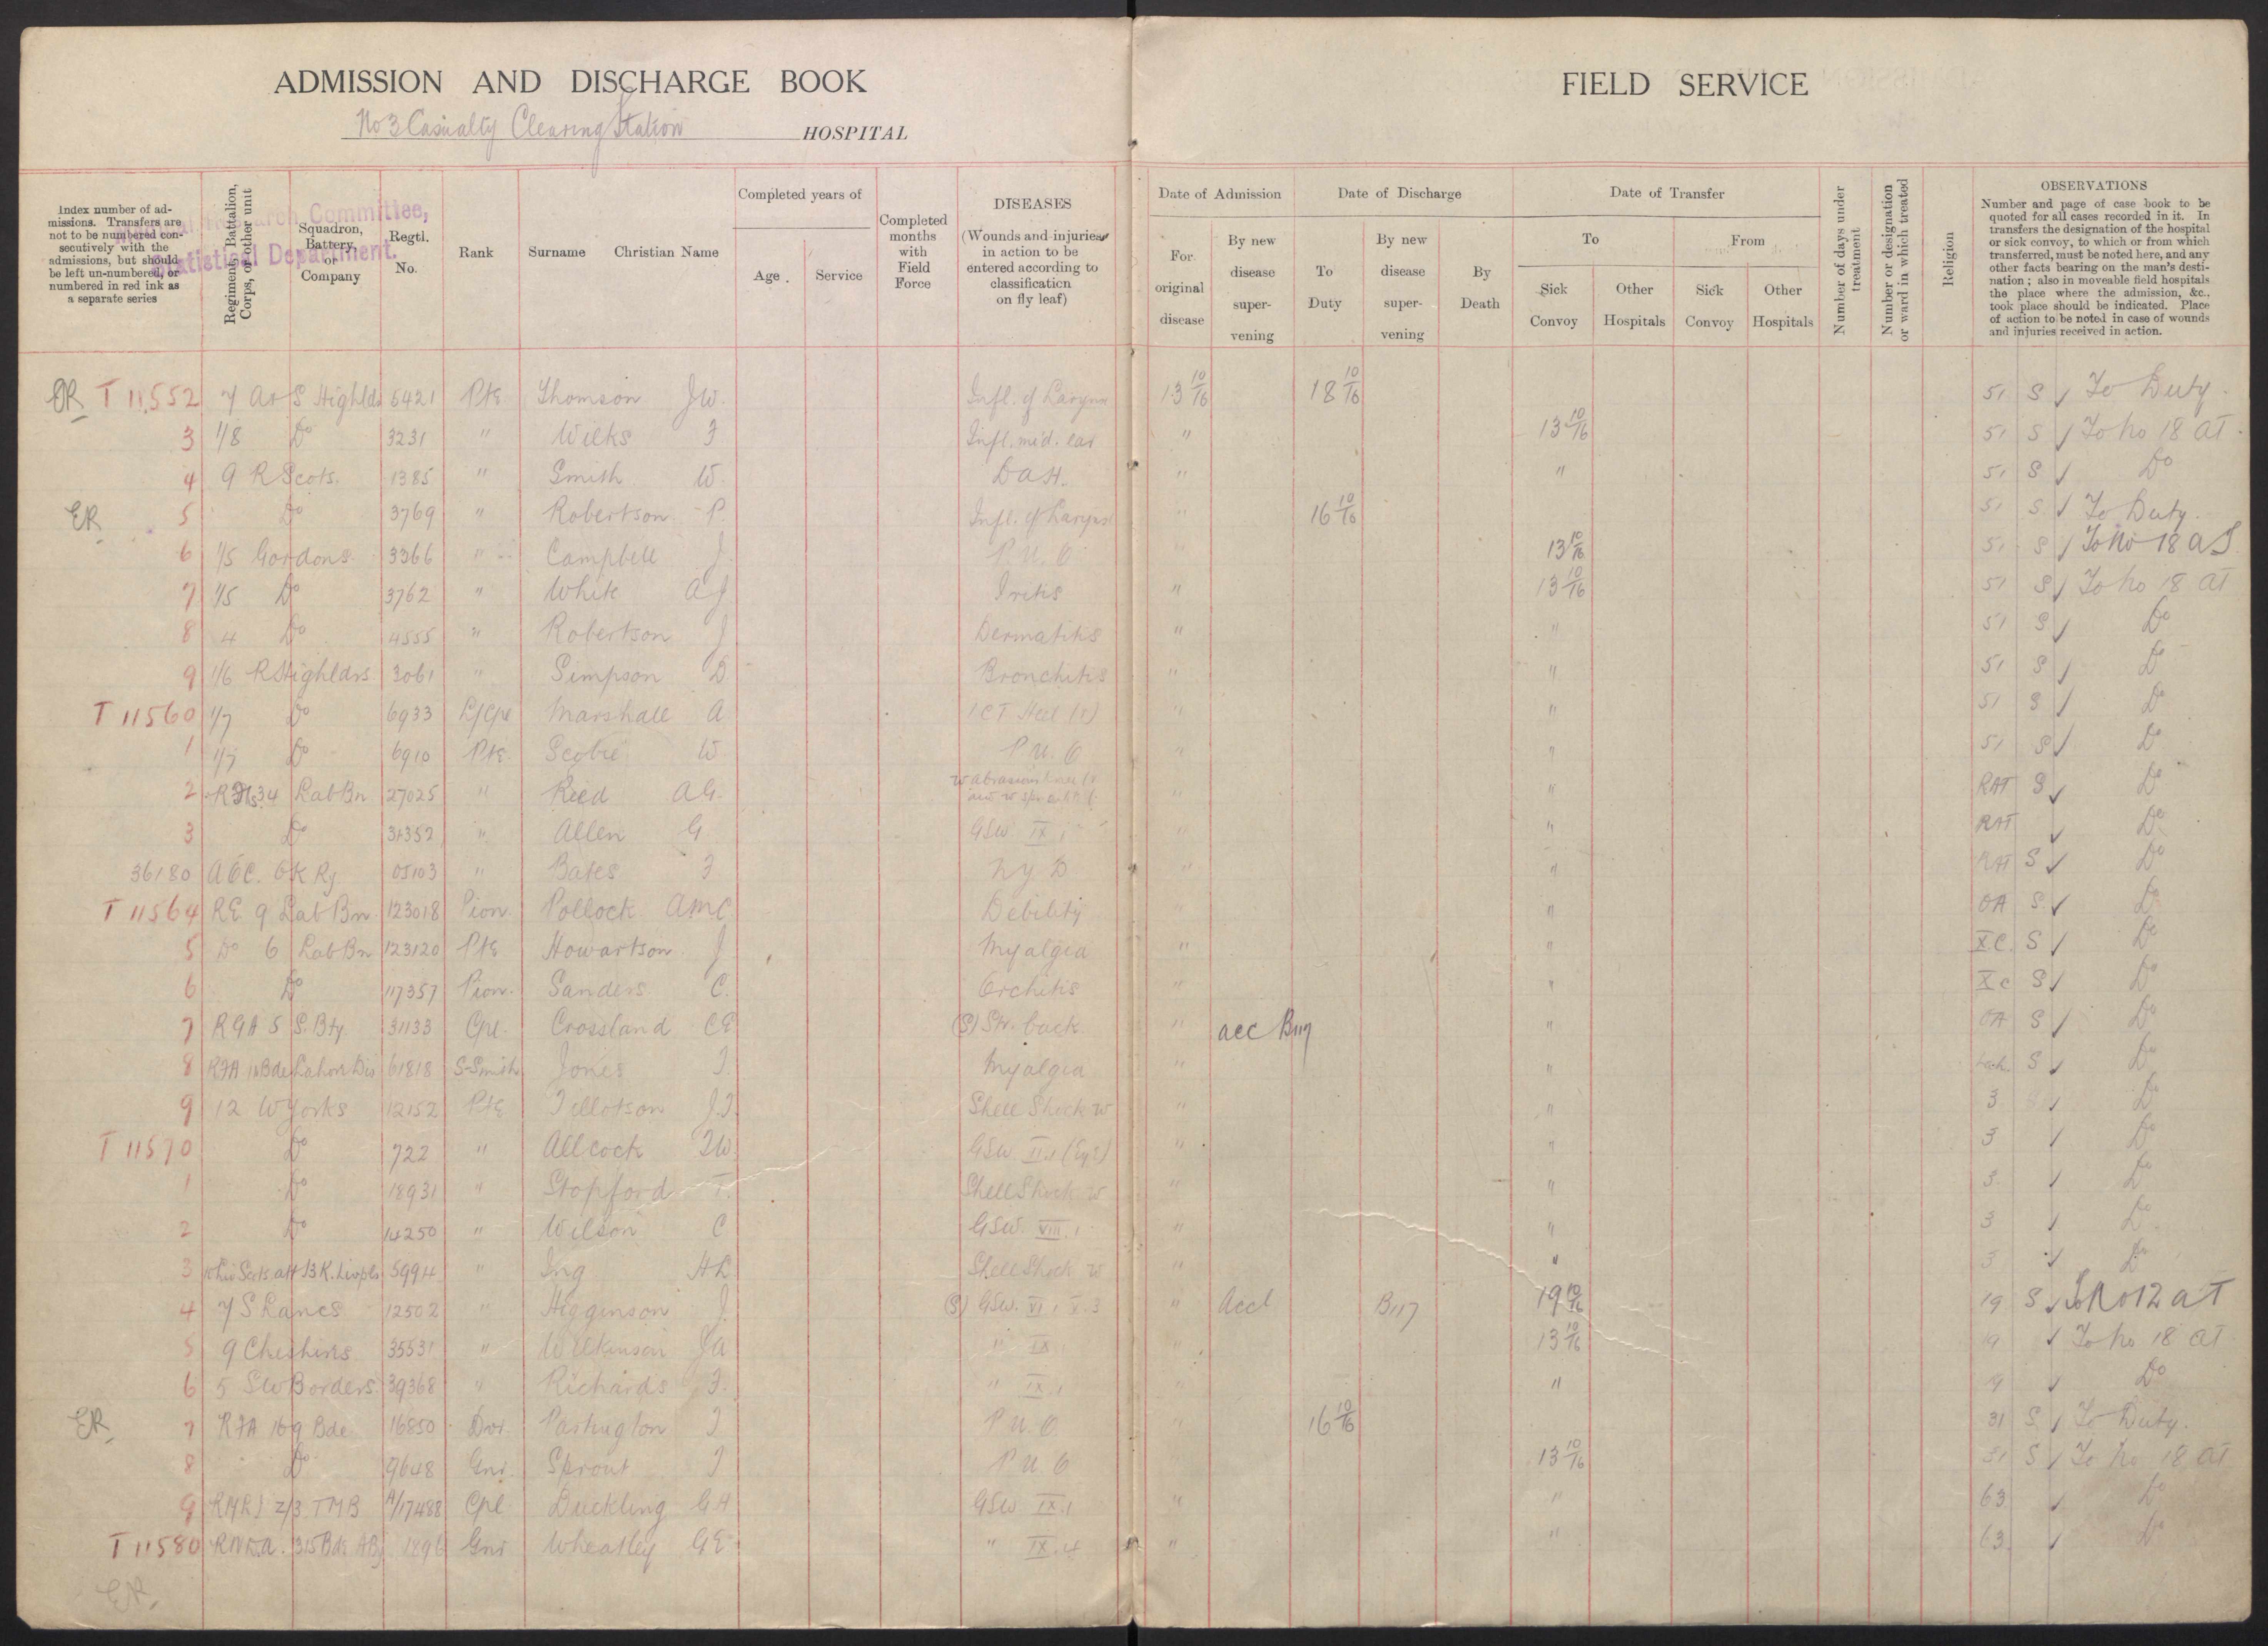 ADMISSION AND DISCHARGE BOOK
No 3 Casualty Clearing Station HOSPITAL
FIELD SERVICE
Index number of admissions. Transfers are not to be numbered consecutively with the admissions, but should be left un-numbered, or numbered in red ink as a separate series
Regiment, Battalion, Corps, or other unit
Squadron, Battery, or Company
Regtl. No.
Rank
Surname Christian Name
Completed years of
Age. Service
Completed months with Field Force
DISEASES (Wounds and injuries in action to be entered according to classification on fly leaf)
Date of Admission
For original disease
By new disease supervening
Date of Discharge
To Duty
By new disease supervening
By Death
Date of Transfer
To
Sick Convoy
Other Hospitals
From
Sick Convoy
Other Hospitals
Number of days under treatment
Number or designation or ward in which treated
Religion
OBSERVATIONS
Number and page of case book to be quoted for all cases recorded in it. In transfers the designation of the hospital or sick convoy, to which or from which transferred, must be noted here, and any other facts bearing on the man's destination; also in moveable field hospitals the place where the admission, &c., took place should be indicated. Place of action to be noted in case of wounds and injuries received in action.
Committee,
Statistical Department.
ER T 11552 7 A & S Highldrs 5421 Pte Thomson JW. Infl. of Larynx 13 10/16 18 10/16 51 S ✓ To Duty.
3 1/8 Do 3231 " Wilks F Infl. mid. ear " 13 10/16 51 S ✓ To No 18 AT.
4 9 R Scots. 1385 " Smith W. DAH. " " 51 S ✓ Do
ER 5 Do 3769 " Robertson P Infl. of Larynx " 16 10/16 51 S. ✓ To Duty.
6 1/5 Gordons 3366 " Campbell J. P.U.O " 13 10/16 51 S ✓ To No 18 A
7 1/5 Do 3762 " White AJ Iritis " 13 10/16 51 S ✓ To No 18 AT
8 4 Do 4555 " Robertson J Dermatitis " " 51 S ✓ Do
9 1/6 R Highldrs 3061 " Simpson D Bronchitis " " 51 S ✓ Do
T 11560 1/7 Do 6933 L/Cpl Marshall A ICT Heel (r) " " 51 S ✓ Do
1 1/7 Do 6910 Pte. Scobie W. P.U.O " " 51 S ✓ Do
2 34 Lab Bn 27025 " Reed AG. " " RAT S ✓ Do
3 Do 31352 " Allen G GSW IX 1 " " RAT ✓ Do
36180 AOC. Ry 05103 " Bates F NYD " " RAT S ✓ Do
T 11564 RE 9 Lab Bn 123018 Pion. Pollock AMC Debility " " OA S. ✓ Do
5 Do 6 Lab Bn 123120 Pte Howartson J Myalgia " " XC. S ✓ Do
6 Do 117357 Pion. Sanders C. Orchitis " " Xc S ✓ Do
7 RGA 5 S. Bty 31133 Cpl. Crossland CE (S) Str. back " acc B117 " OA S ✓ Do
8 RFA Bde Lahore Div 61818 S-Smith Jones T Myalgia " " Lah. S ✓ Do
9 12 W Yorks 12152 Pte Tillotson J.T. Shell Shock W " " 3 ✓ Do
T 11570 Do 722 " Allcock GSW II.1 (Eye) " " 3 ✓ Do
1 Do 18931 " Stopford T. Shell Shock W " " 3. ✓ Do
2 Do 14250 " Wilson C GSW. VIII. 1 " " 3 ✓ Do
3 att 13 K. Livpls 5994 " Ing HL Shell Shock W " " 3 ✓ Do
4 7 S Lancs 12502 " Higginson J. (S) GSW. VI. 1 X. 3 " Accl B117 19 10/16 19 S ✓ To No 12 AT
5 9 Cheshires 35531 " Wilkinson JA " IX 1 " 13 10/16 19 ✓ To No 18 AT
6 5 SW Borders. 39368 " Richards F. " IX. 1 " " 19 ✓ Do
ER 7 RFA 169 Bde 16850 Dvr Partington T P.U.O " 16 10/16 31 S. ✓ To Duty.
8 Do 9648 Gnr. Sprout T P U O " 13 10/16 51 S ✓ To No 18 AT
9 Z/3 TMB A/17488 Cpl Duckling GH GSW IX.1 " " 63 ✓ Do
T 11580 315 Bde 1896 Gnr Wheatley GE " IX. 4 " " 63. ✓ Do
ER.